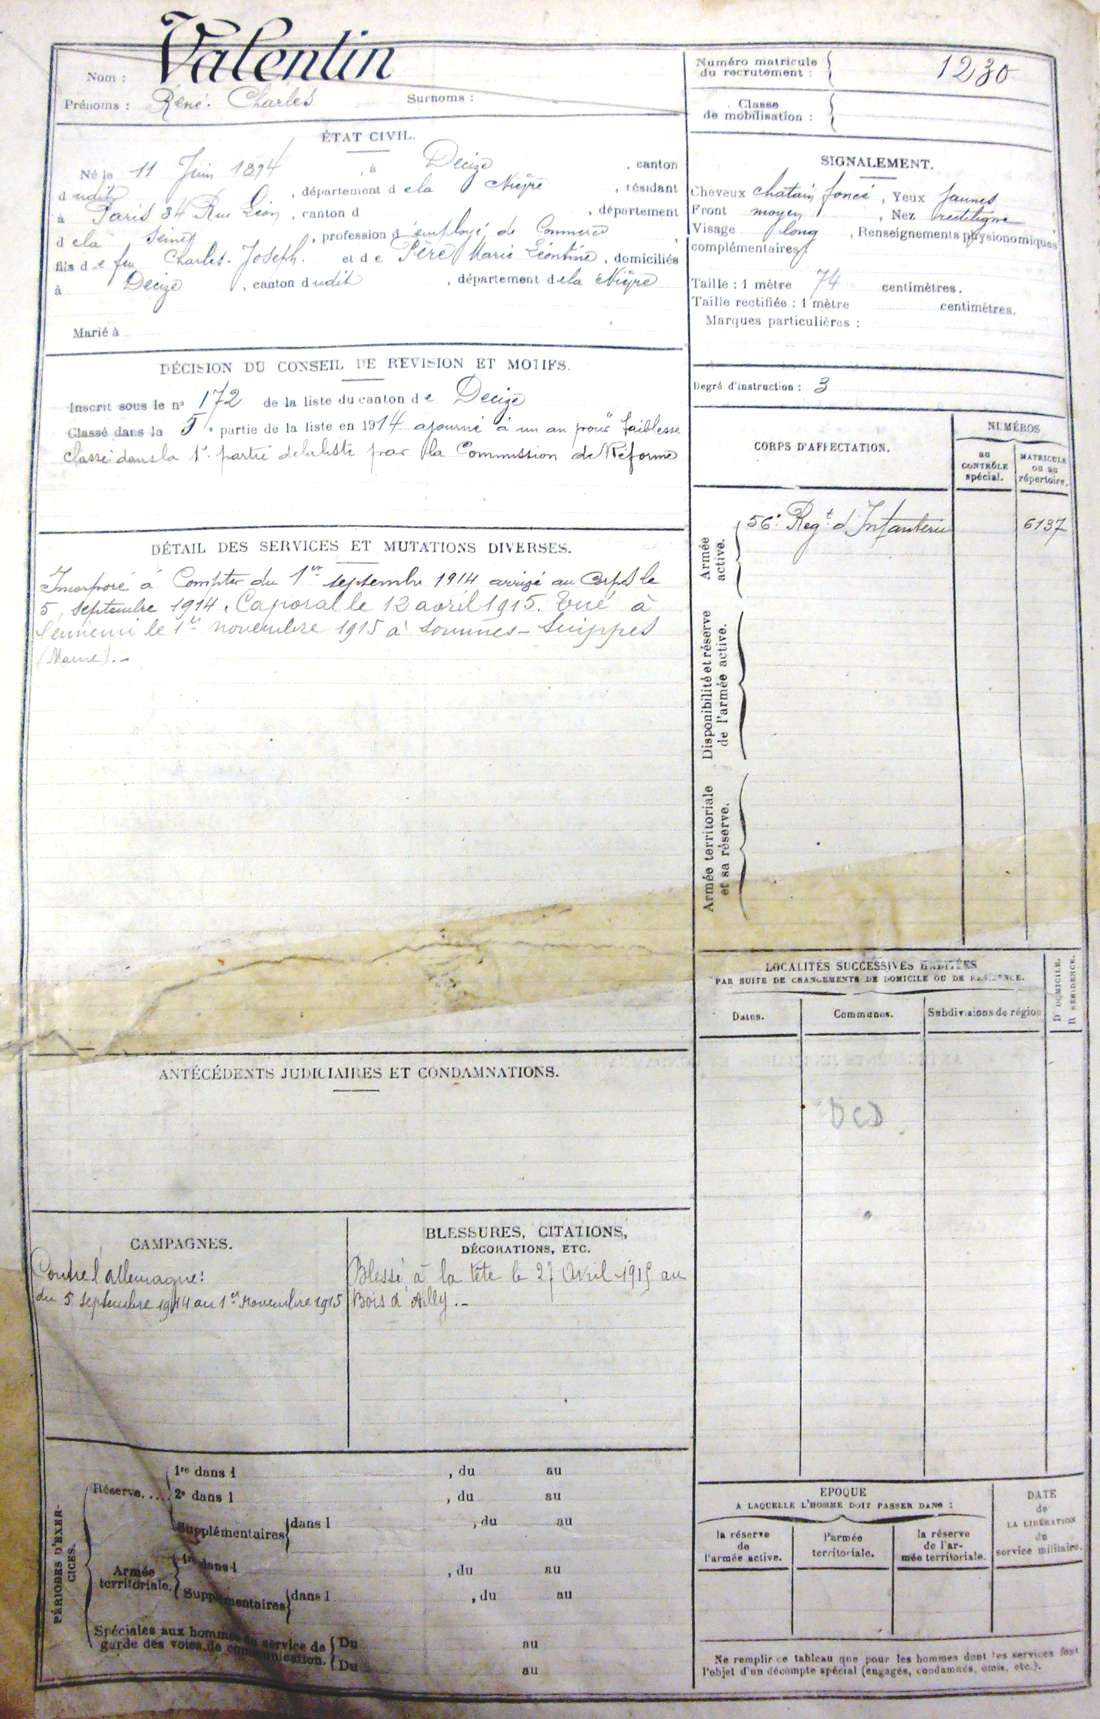 Nom : Valentin
Prénoms : René. Charles Surnoms :
ÉTAT CIVIL.
Né le 11 Juin 1894, à Decize, canton
dudit, département de la Nièvre, résidant
à Paris 34 Rue Léon, canton d , département
de la Seine, profession d'employé de Commerce,
fils de feu Charles-Joseph. et de Père Marie Léontine, domiciliés
à Decize, canton dudit, département de la Nièvre
Marié à
DÉCISION DU CONSEIL DE REVISION ET MOTIFS.
Inscrit sous le n° 172 de la liste du canton de Decize
Classé dans la 5e partie de la liste en 1914 ajourné à un an pour faiblesse
Classé dans la 1e partie de la liste par la Commission de Réforme
DÉTAIL DES SERVICES ET MUTATIONS DIVERSES.
Incorporé à Compter du 1er septembre 1914 arrivé au Corps le
5 septembre 1914. Caporal le 12 avril 1915. Tué à
l'ennemi le 1er novembre 1915 à Sommes-Suippes
(Marne).-
ANTÉCÉDENTS JUDICIAIRES ET CONDAMNATIONS.
CAMPAGNES.
Contre l'allemagne :
du 5 septembre 1914 au 1er Novembre 1915
BLESSURES, CITATIONS,
DÉCORATIONS, ETC.
Blessé à la tête le 27 avril 1915 au
Bois d'Ailly.-
PÉRIODES D'EXER-
CICES.
Réserve....
1re dans l , du au
2e dans l , du au
Supplémentaires dans l , du au
Armée
territoriale.
1re dans l , du au
Supplémentaires dans l , du au
Spéciales aux hommes du service de
garde des voies de communication.
Du au
Du au
Numéro matricule
du recrutement : 1230
Classe
de mobilisation :
SIGNALEMENT.
Cheveux chatain foncé, Yeux Jaunes
Front moyen, Nez rectiligne
Visage long, Renseignements physionomiques
complémentaires :
Taille : 1 mètre 74 centimètres.
Taille rectifiée : 1 mètre centimètres.
Marques particulières :
Degré d'instruction : 3
CORPS D'AFFECTATION.
NUMÉROS
au
CONTRÔLE
spécial.
MATRICULE
ou au
répertoire.
Armée
active.
56e Regt d'Infanterie 6137
Disponibilité et réserve
de l'armée active.
Armée territoriale
et sa réserve.
LOCALITÉS SUCCESSIVES HABITÉES
PAR SUITE DE CHANGEMENTS DE DOMICILE OU DE RÉSIDENCE.
Dates.
Communes.
Subdivisions de région
D DOMICILE.
R RÉSIDENCE.
DCD
EPOQUE
A LAQUELLE L'HOMME DOIT PASSER DANS :
la réserve
de
l'armée active.
l'armée
territoriale.
la réserve
de l'ar-
mée territoriale.
DATE
de
LA LIBÉRATION
du
service militaire.
Ne remplir ce tableau que pour les hommes dont les services font
l'objet d'un décompte spécial (engagés, condamnés, omis, etc.).